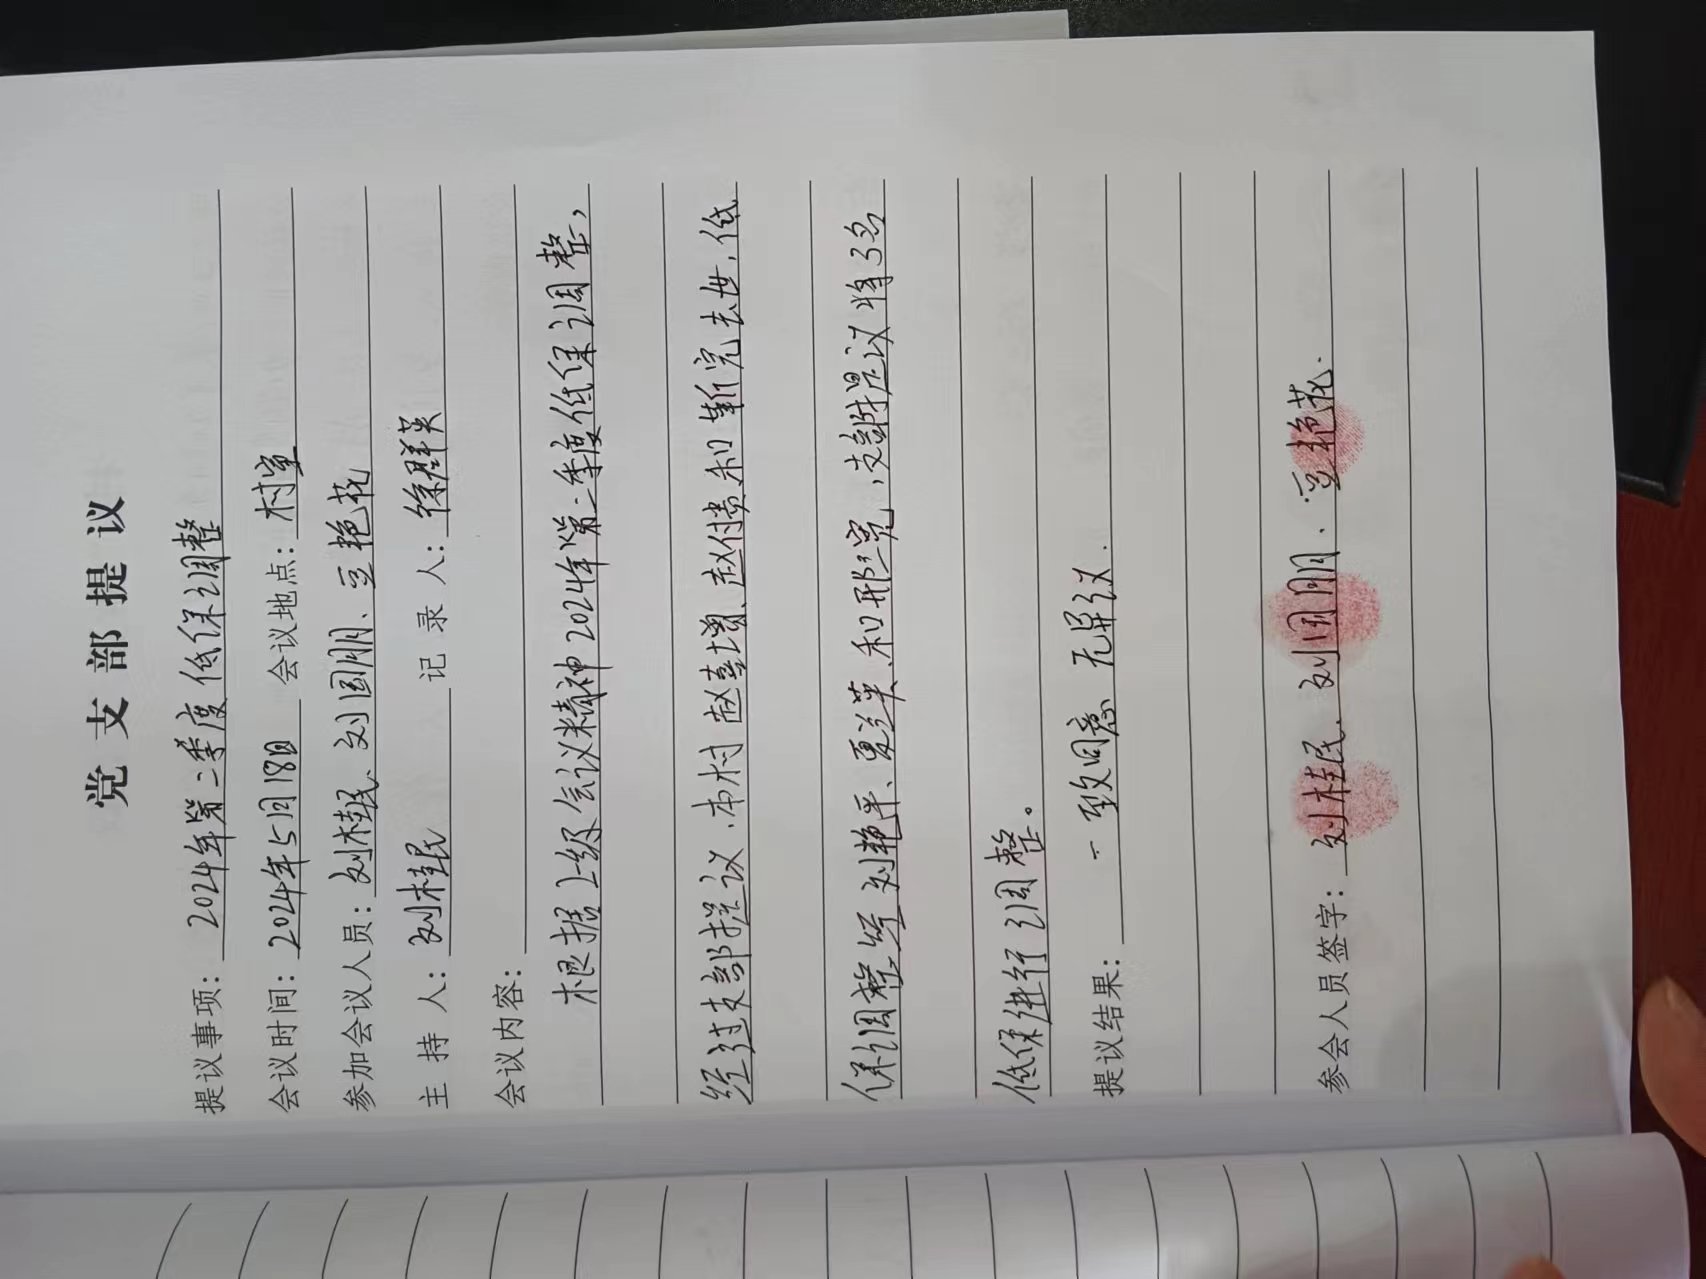 党支部提议
提议事项：2024年第二季度低保调整
会议时间：2024年5月18日 会议地点：村室
参加会议人员：刘桂民、刘国朋、豆艳花
主持人：刘桂民 记录人：徐群英
会议内容：
根据上级会议精神2024年第二季度低保调整，
经过支部提议，本村赵喜增、赵付贵和靳完去世，低
保调整为刘艳平、夏兰英和邢宽，支部提议将3名
低保进行调整。
提议结果：一致同意 无异议．
参会人员签字：刘桂民、刘国朋、豆艳花．